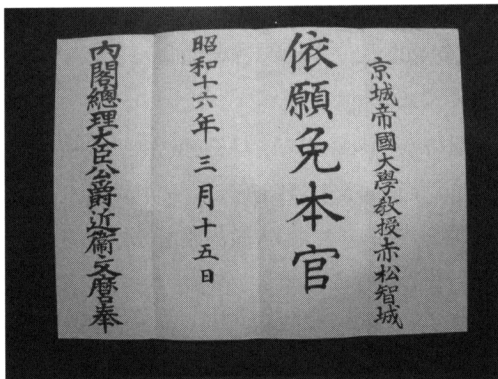 京城帝國大學教授赤松智城
依願免本官
昭和十六年三月十五日
內閣總理大臣公爵近衞文麿奉